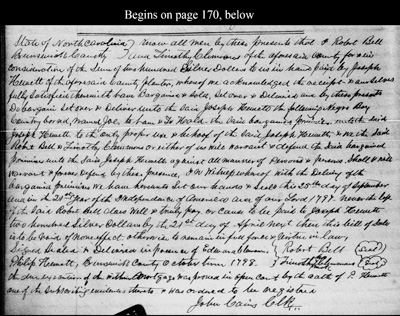 Begins on page 170, below
State of North Carolina Know all men by these presents that I Robert Bell
Brunswick County and Timothy Clemmons of the aforesaid County for & in
consideration of the Sum of two hundred Silver Dollars to us in hand paid by Joseph
Hewett of the aforesaid County planter, whereof we acknowledged the receipt & ourselves
fully Satisfied therewith have Bargained & Sold, Set over & Delivered and by these presents
Do bargain Set over & Deliver unto the Said Joseph Hewett the following Negroe Boy
Country born, named Joe. to have & To Hold the Said bargained premises unto the Said
Joseph Hewett to the only proper use & behoof of the Said Joseph Hewett & we the Said
Robt Bell & Timothy Clemmons or either of us will warrant & defend the Said bargained
premises unto the Said Joseph Hewett against all manner of Persons & Persons Shall & will
warrant & forever Defend by these presents, In Witness whereof with the Delivery of the
bargained premises We have hereunto Set our hands & Seals this 25th day of September
and in the 21st Year of the Independence of America anno of our Lord 1797. Nevertheless
if the Said Robert Bell does Well & truly pay or cause to be paid to Joseph Hewett
two hundred Silver Dollars by the 21st day of April next then this bill of Sale
to be Void of None effect otherwise to remain in full force & Virtue in law
Signed Sealed & Delivered in presence of Robert Bell Seal
Philip Hewett, Brunswick County October term 1798. Timothy Clemmons Seal
the due execution of the within Mortgage was proved in open Court by the oath of P. Hewett
one of the Subscribing witnesses thereto & was ordered to be registered
John Cains Clk.